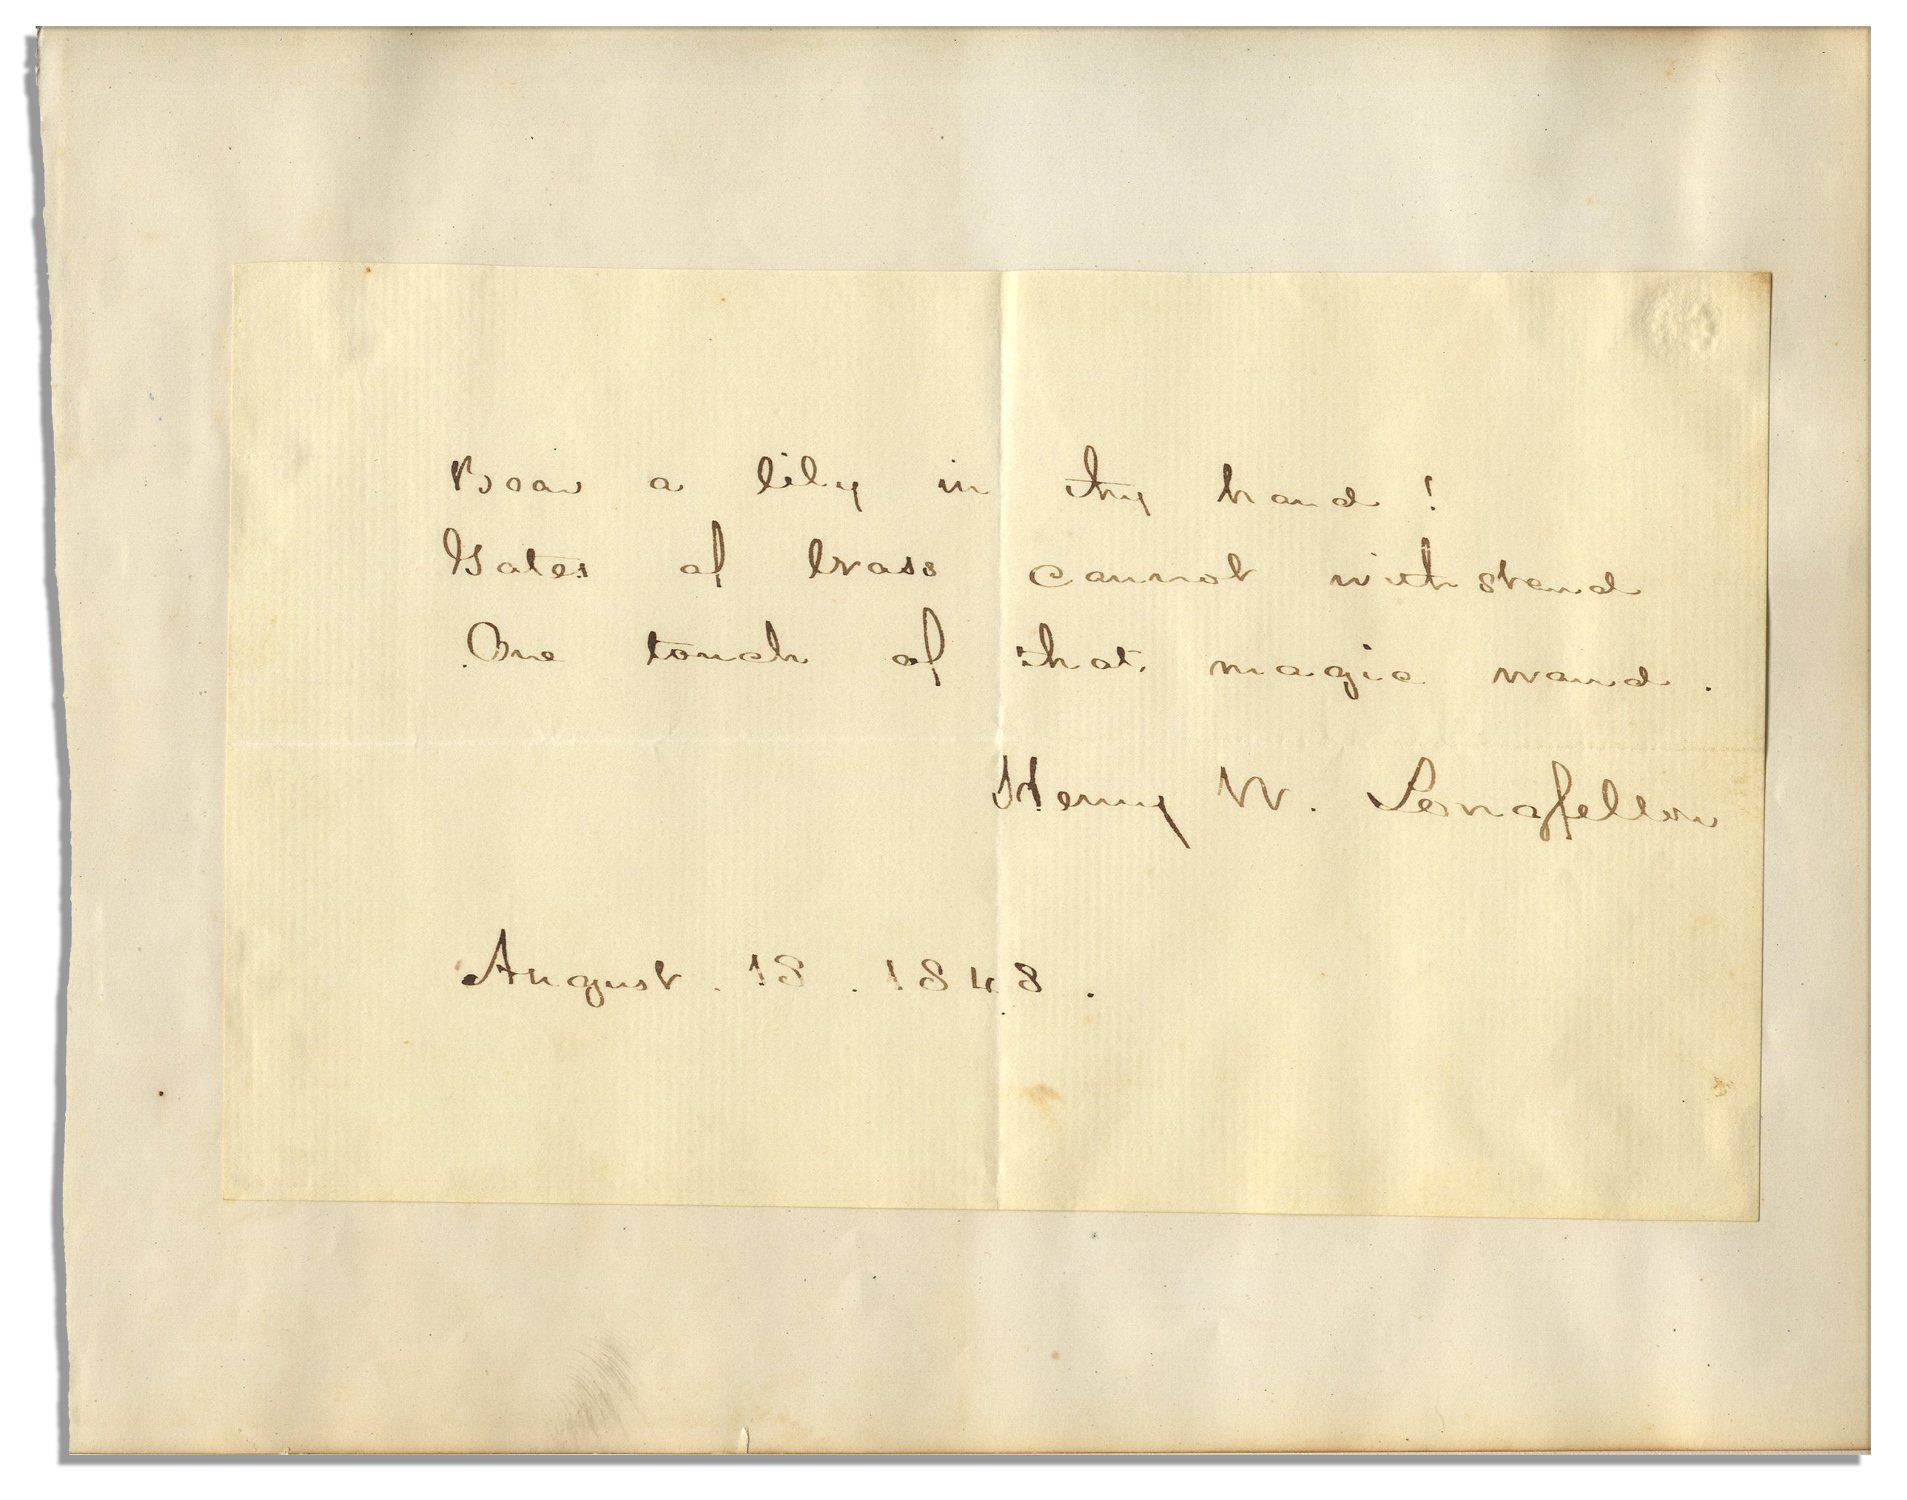 Bear a lily in thy hand !
Gates of brass cannot withstand
One touch of that magic wand .
Henry W. Longfellow
August . 18 . 1848 .